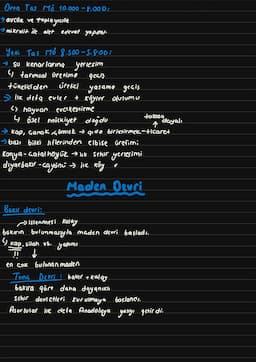 Orta Taş MÖ 10.000 - 8.000:
→ avcılık ve toplayıcılık
→ mikrolit ile alet edevat yapımı
Yeni Taş MÖ 8.500 - 5.800:
→ su kenarlarına yerleşim
↳ tarımsal üretime geçiş
tüketiciden üretici yaşama geçiş
→ ilk defa evler + köyler oluşumu
↳ hayvan evcilleştirme
↳ özel mülkiyet doğdu
→ kap, çanak, çömlek → gıda biriktirmek - ticaret
takas dayalı
→ bazı bitki liflerinden elbise üretimi
Konya - Çatalhöyük → ilk şehir yerleşimi
diyarbakır - çayönü → ilk köy
Maden Devri
Bakır devri:
→ işlenmesi kolay
bakırın bulunmasıyla maden devri başladı.
↳ kap, silah vb. yapımı
en çok bulunan maden
Tunç Devri: bakır + kalay
bakıra göre daha dayanıklı
Şehir devletleri kurulmaya başlandı.
Asurlular ilk defa Anadoluya yazıyı getirdi.